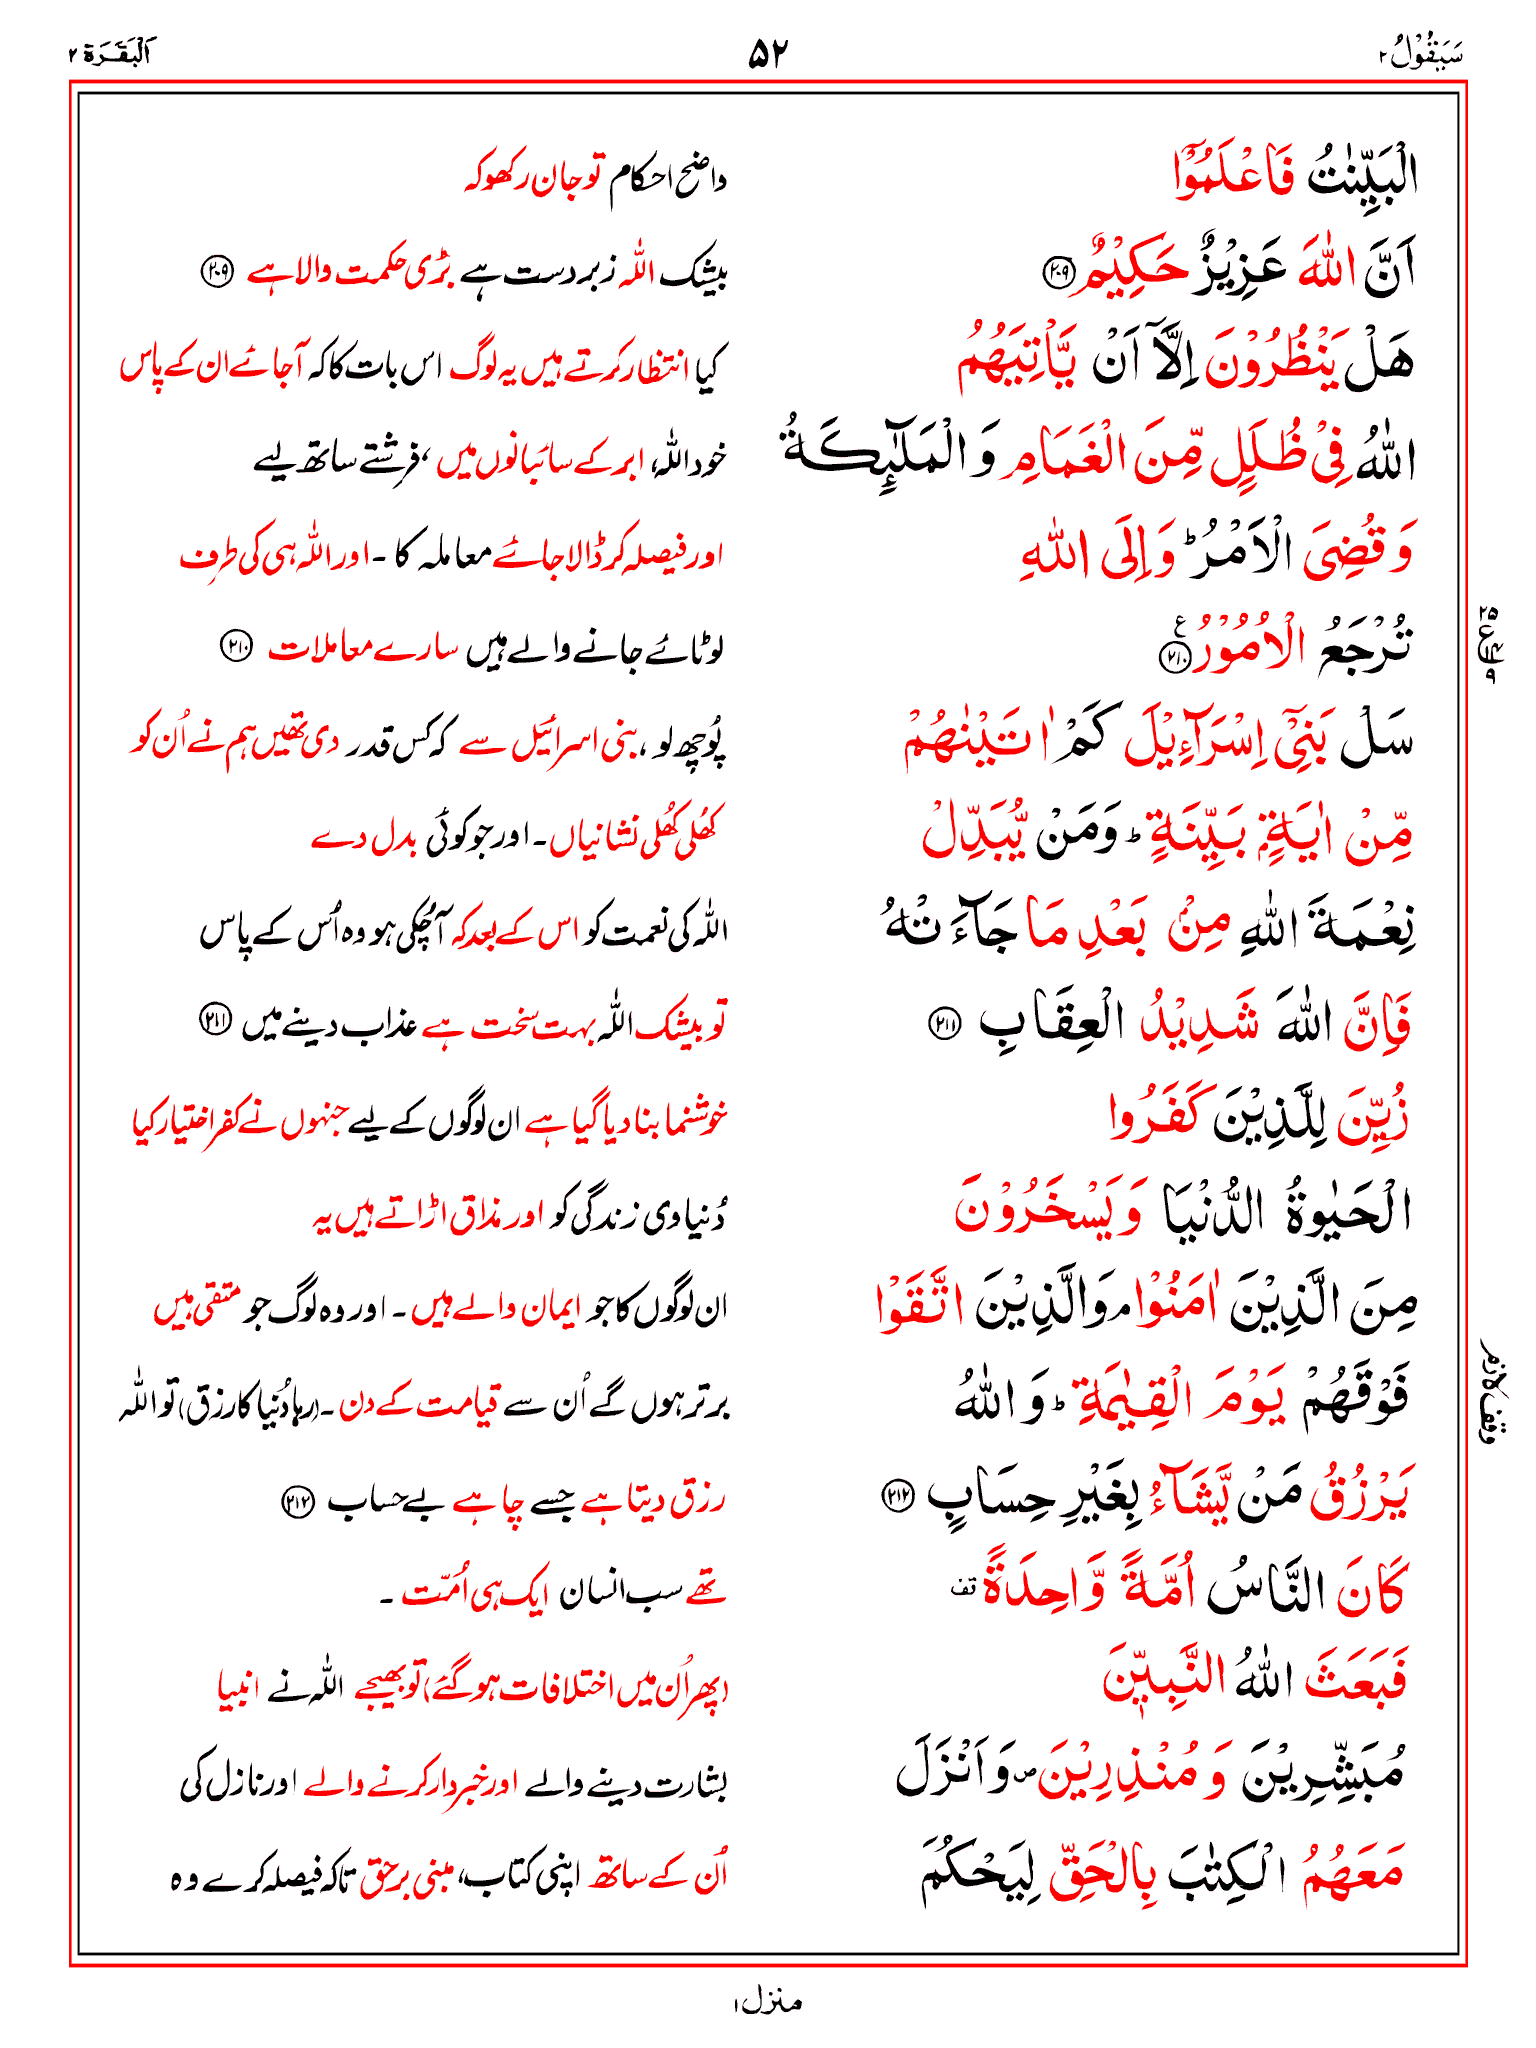 سَيَقُوْلُ ٢
٥٢
اَلْبَقَرَة ٢
الْبَيِّنٰتُ فَاعْلَمُوْٓا
واضح احکام تو جان رکھو کہ
اَنَّ اللّٰهَ عَزِيْزٌ حَكِيْمٌ ﴿٢٠٩﴾
بیشک اللہ زبردست ہے بڑی حکمت والا ہے ﴿٢٠٩﴾
هَلْ يَنْظُرُوْنَ اِلَّآ اَنْ يَّاْتِيَهُمُ
کیا انتظار کرتے ہیں یہ لوگ اس بات کا کہ آجائے ان کے پاس
اللّٰهُ فِيْ ظُلَلٍ مِّنَ الْغَمَامِ وَالْمَلٰٓئِكَةُ
خود اللہ، ابر کے سائبانوں میں، فرشتے ساتھ لیے
وَقُضِيَ الْاَمْرُ ؕ وَاِلَى اللّٰهِ
اور فیصلہ کر ڈالا جائے معاملہ کا ۔ اور اللہ ہی کی طرف
تُرْجَعُ الْاُمُوْرُ ﴿٢١٠﴾ ع
لوٹائے جانے والے ہیں سارے معاملات ﴿٢١٠﴾
سَلْ بَنِيْٓ اِسْرَآءِيْلَ كَمْ اٰتَيْنٰهُمْ
پُوچھ لو، بنی اسرائیل سے کہ کس قدر دی تھیں ہم نے اُن کو
مِّنْ اٰيَةٍۭ بَيِّنَةٍ ؕ وَمَنْ يُّبَدِّلْ
کھُلی کھُلی نشانیاں ۔ اور جو کوئی بدل دے
نِعْمَةَ اللّٰهِ مِنْۢ بَعْدِ مَا جَآءَتْهُ
اللہ کی نعمت کو اس کے بعد کہ آ چُکی ہو وہ اُس کے پاس
فَاِنَّ اللّٰهَ شَدِيْدُ الْعِقَابِ ﴿٢١١﴾
تو بیشک اللہ بہت سخت ہے عذاب دینے میں ﴿٢١١﴾
زُيِّنَ لِلَّذِيْنَ كَفَرُوا
خوشنما بنا دیا گیا ہے ان لوگوں کے لیے جنہوں نے کفر اختیار کیا
الْحَيٰوةُ الدُّنْيَا وَيَسْخَرُوْنَ
دُنیاوی زندگی کو اور مذاق اڑاتے ہیں یہ
مِنَ الَّذِيْنَ اٰمَنُوْا ۘ وَالَّذِيْنَ اتَّقَوْا
ان لوگوں کا جو ایمان والے ہیں ۔ اور وہ لوگ جو متقی ہیں
فَوْقَهُمْ يَوْمَ الْقِيٰمَةِ ؕ وَاللّٰهُ
برتر ہوں گے اُن سے قیامت کے دن ۔ (رہا دُنیا کا رزق) تو اللہ
يَرْزُقُ مَنْ يَّشَآءُ بِغَيْرِ حِسَابٍ ﴿٢١٢﴾
رزق دیتا ہے جسے چاہے بے حساب ﴿٢١٢﴾
كَانَ النَّاسُ اُمَّةً وَّاحِدَةً تف
تھے سب انسان ایک ہی اُمّت ۔
فَبَعَثَ اللّٰهُ النَّبِيّٖنَ
(پھر اُن میں اختلافات ہو گئے) تو بھیجے اللہ نے انبیا
مُبَشِّرِيْنَ وَمُنْذِرِيْنَ ص وَاَنْزَلَ
بشارت دینے والے اور خبردار کرنے والے اور نازل کی
مَعَهُمُ الْكِتٰبَ بِالْحَقِّ لِيَحْكُمَ
اُن کے ساتھ اپنی کتاب، مبنی بر حق تاکہ فیصلہ کرے وہ
وقف لازم
منزل ١